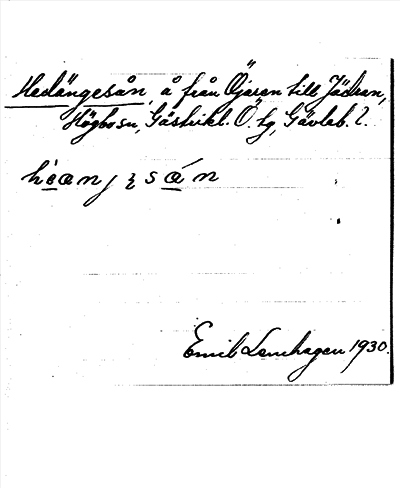 Hedängesån, å från Öjaren till Jädran,
Högbo sn, Gästrikl. Ö. tg, Gävleb. l.
Emil Lenhagen 1930.